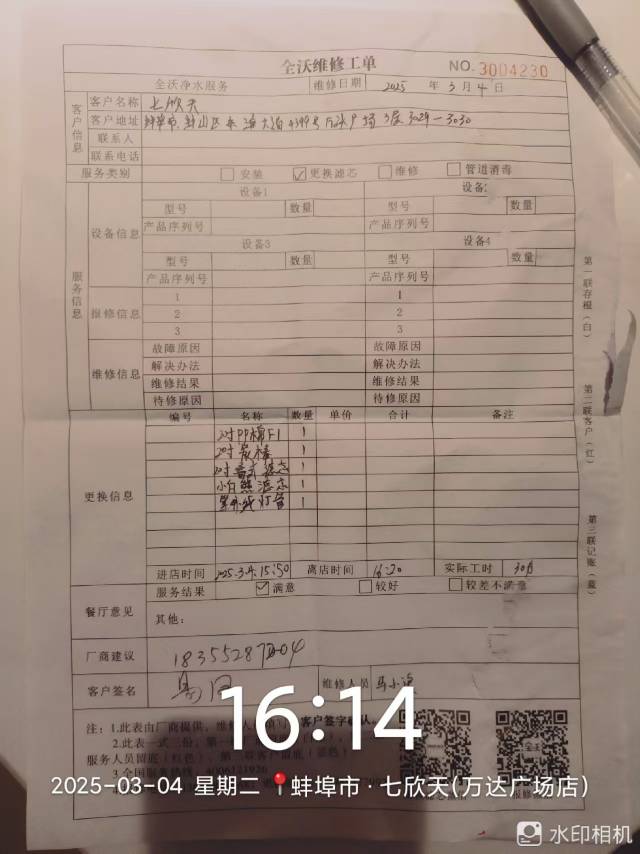 全沃维修工单
NO. 3004230
全沃净水服务 维修日期 2025 年 3 月 4 日
客户信息
客户名称 七欣天
客户地址 蚌埠市 蚌山区 4399号 万达广场 3层 3029-3030
联系人
联系电话
服务类别 安装 更换滤芯 维修 管道消毒
服务信息
设备信息
设备1 设备2
型号 数量 型号 数量
产品序列号 产品序列号
设备3 设备4
型号 数量 型号 数量
产品序列号 产品序列号
报修信息
1 1
2 2
3 3
维修信息
故障原因 故障原因
解决办法 解决办法
维修结果 维修结果
待修原因 待修原因
更换信息
编号 名称 数量 单价 合计 备注
20寸PP棉F1 1
20寸炭棒 1
20寸 滤芯 1
小白熊滤芯 1
紫外线灯管 1
进店时间 2025.3.4. 15:50 离店时间 16:20 实际工时 30分
餐厅意见
服务结果 满意 较好 较差不满意
其他:
厂商建议
客户签名 维修人员
第一联存根(白)
第二联客户(红)
第三联记账(蓝)
注:1.此表由厂商提供,维修人 客户签字确认。
2.此表一式三份,第一
服务人员留底(红色),第三联客户留底(蓝色)
3.全国服务热线:4006121926
16:14
2025-03-04 星期二 蚌埠市·七欣天(万达广场店)
水印相机